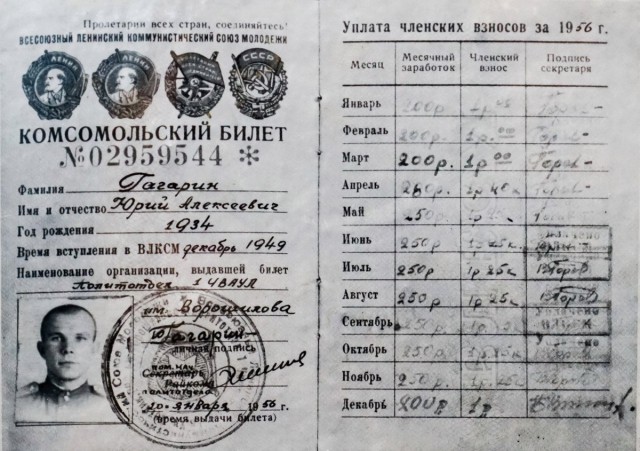 Пролетарии всех стран, соединяйтесь!
ВСЕСОЮЗНЫЙ ЛЕНИНСКИЙ КОММУНИСТИЧЕСКИЙ СОЮЗ МОЛОДЕЖИ
ЛЕНИН ЛЕНИН СССР
КОМСОМОЛЬСКИЙ БИЛЕТ
№ 02959544 *
Фамилия Гагарин
Имя и отчество Юрий Алексеевич
Год рождения 1934
Время вступления в ВЛКСМ декабрь 1949
Наименование организации, выдавшей билет
Политотдел 1 ЧВАУЛ
им. Ворошилова
Гагарин
личная подпись
пом. нач.
Секретарь
Райкома
политотдела
20 января 1956 г.
(время выдачи билета)
Уплата членских взносов за 1956 г.
Месяц Месячный заработок Членский взнос Подпись секретаря
Январь 200р.
Февраль 200р. 1р.00
Март 200р. 1р00
Апрель
Май 250р.
Июнь 250р. 1р 25к
Июль 250р 1р 25к
Август 250р 1р 25к
Сентябрь 250р
Октябрь 250р. 1р.25к
Ноябрь 250р. 1р 25к
Декабрь 1р